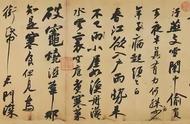 汙燕支雪闇中偷負
去夜半真有力何殊少
年子病起頭已白
春江欲入戶雨勢來
不已雨小屋如漁舟濛濛
水雲裏空庖煮寒菜
破竈燒濕葦那知
是寒食但見烏
銜帋君門深